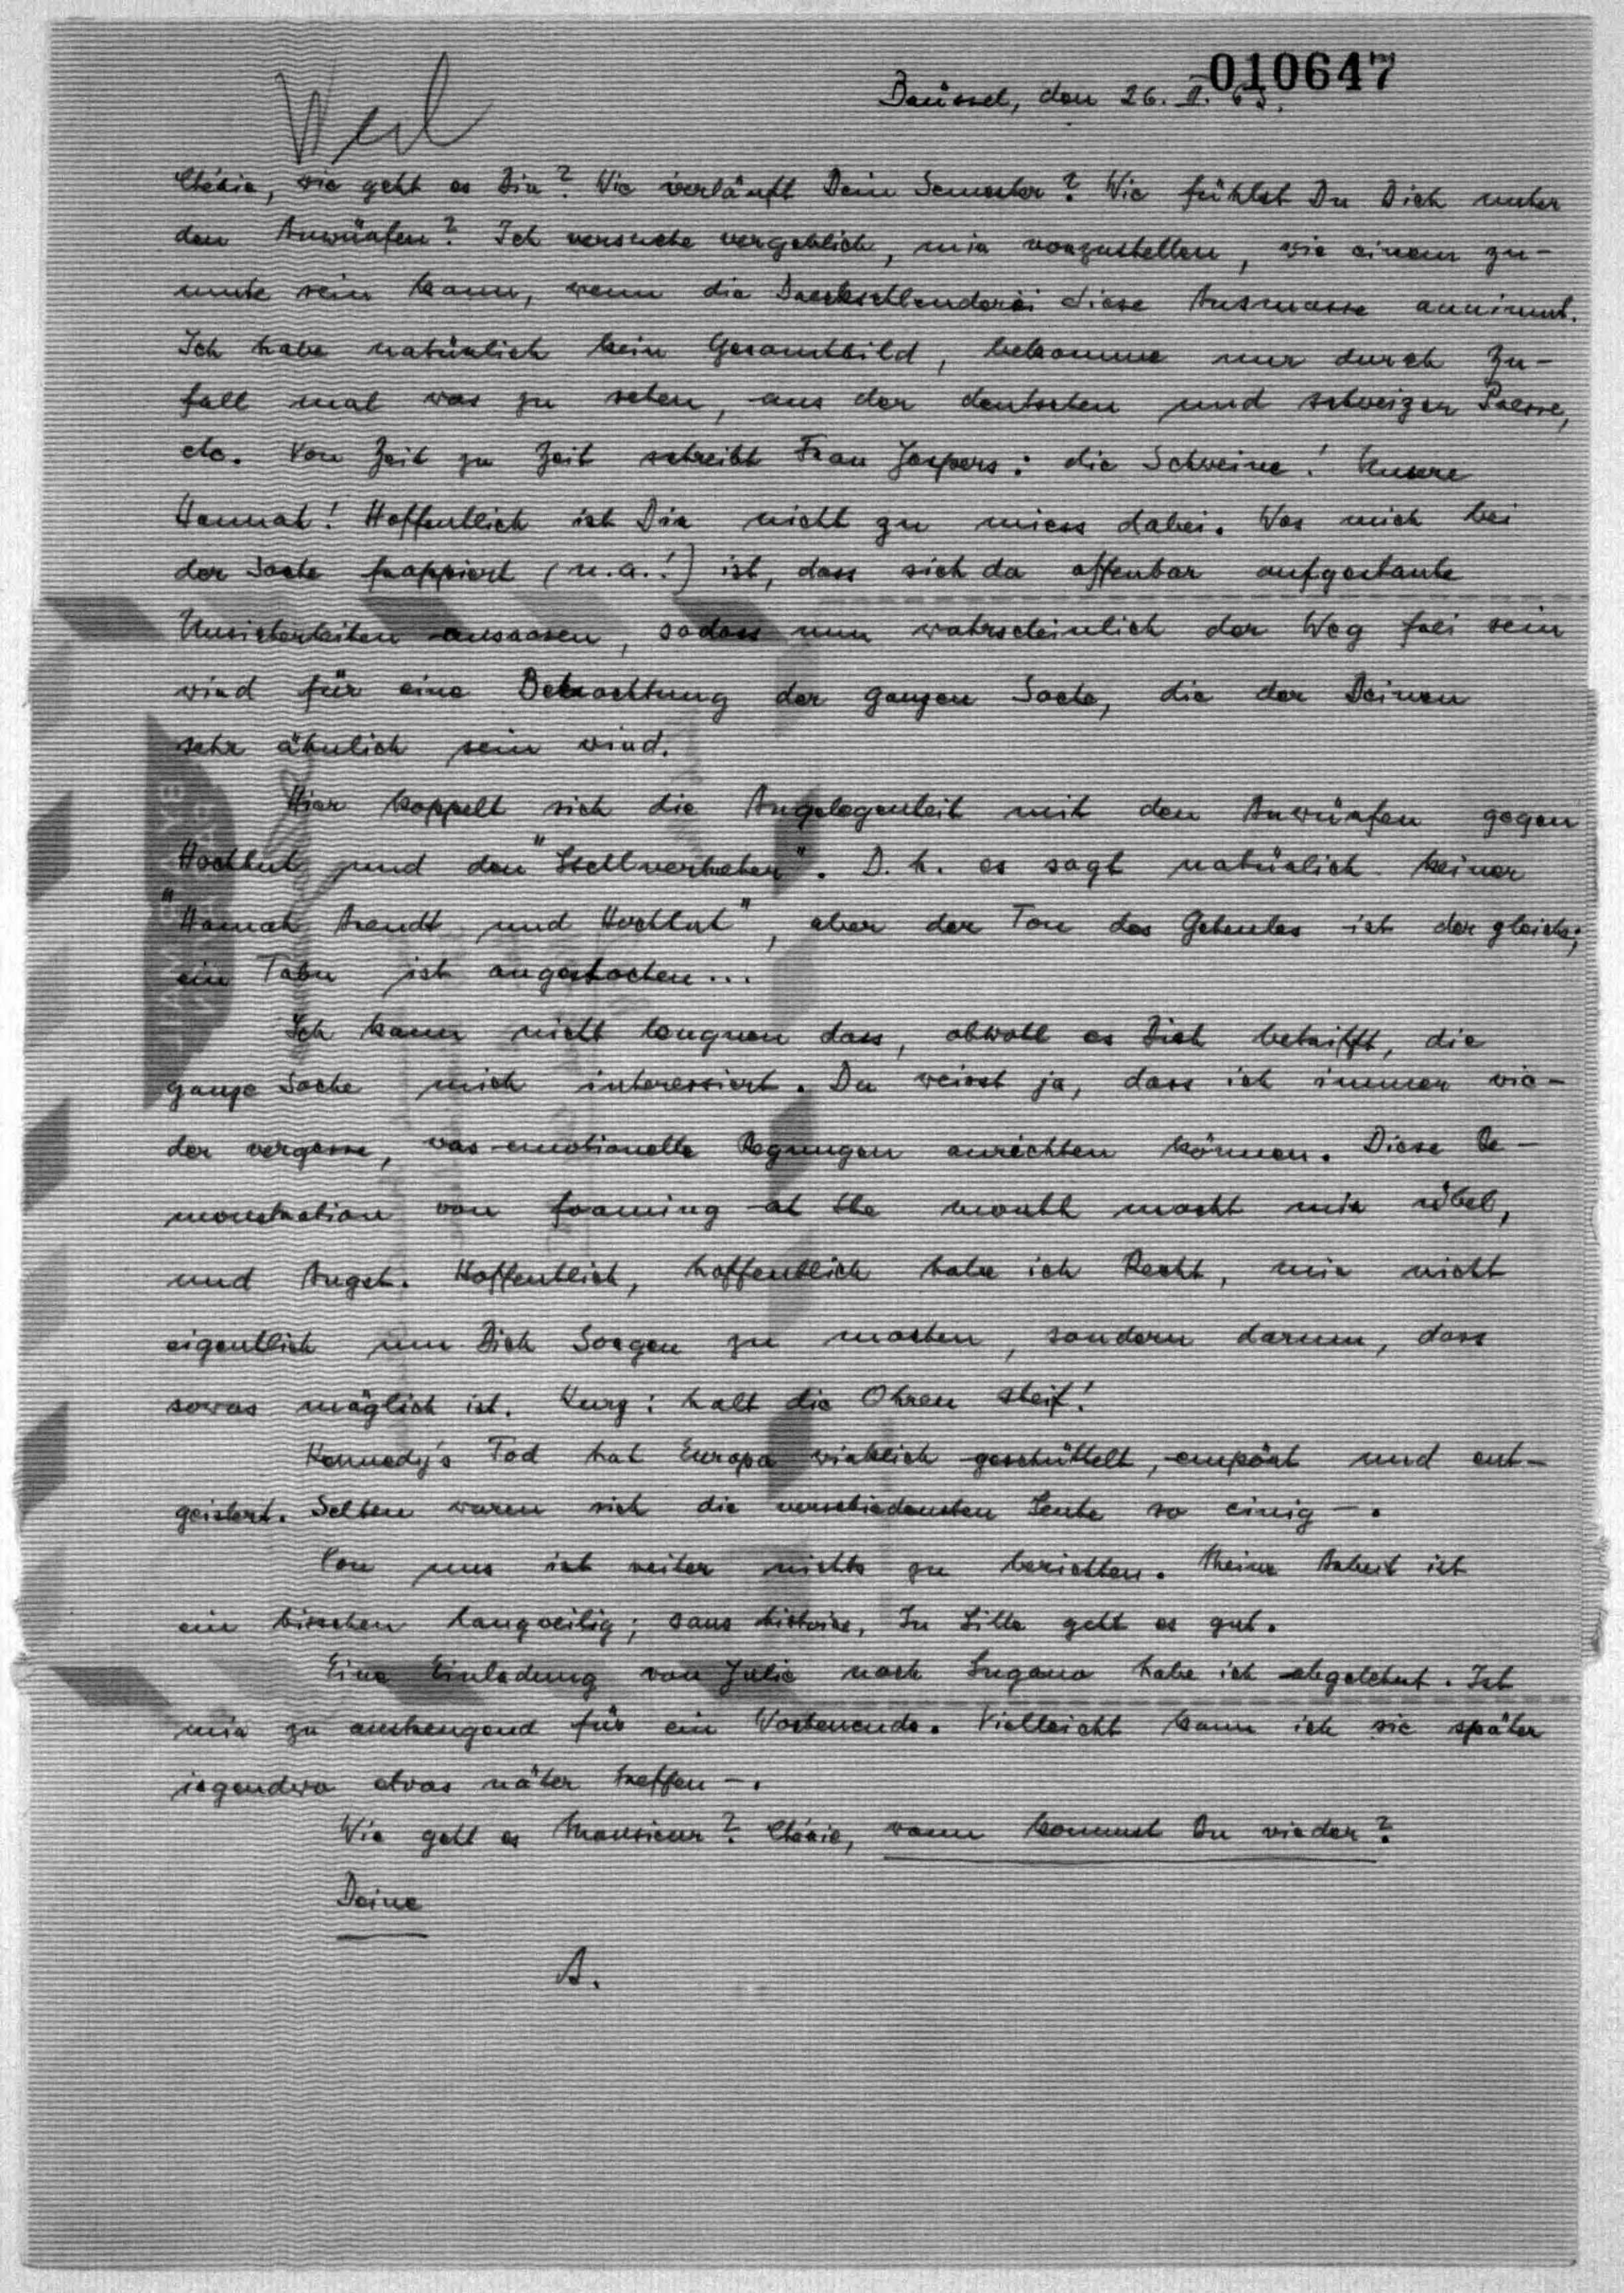 010647
Weil
Brüssel, den 26.
Chérie, wie geht es Dir? Wie verläuft Dein Semester? Wie fühlst Du Dich unter
den Anwürfen? Ich versuche vergeblich, mir vorzustellen, wie einem zu-
mute sein kann, wenn die Dreckschleuderei diese Ausmasse annimmt.
Ich habe natürlich kein Gesamtbild, bekomme nur durch Zu-
fall mal was zu sehen, aus der deutschen und schweizer Presse,
etc. Von Zeit zu Zeit schreibt Frau Jaspers: die Schweine! Unsere
Hannah! Hoffentlich ist Dir nicht zu miess dabei. Was mich bei
der Sache frappiert (u.a.!) ist, dass sich da offenbar aufgestaute
Unsicherheiten ausrasen, sodass nun wahrscheinlich der Weg frei sein
wird für eine Betrachtung der ganzen Sache, die der Deinen
sehr ähnlich sein wird.
Hier koppelt sich die Angelegenheit mit den Anwürfen gegen
Hochhut und den "Stellvertreter". D.h. es sagt natürlich keiner
"Hannah Arendt und Hochhut", aber der Ton des Geheules ist der gleiche;
ein Tabu ist angestochen...
Ich kann nicht leugnen dass, obwohl es Dich betrifft, die
ganze Sache mich interessiert. Du weisst ja, dass ich immer wie-
der vergesse, was emotionelle Regungen anrichten können. Diese De-
monstration von foaming at the mouth macht mir übel,
und Angst. Hoffentlich, hoffentlich habe ich Recht, mir nicht
eigentlich um Dich Sorgen zu machen, sondern darum, dass
sowas möglich ist. Kurz: halt die Ohren steif!
Kennedy's Tod hat Europa wirklich geschüttelt, empört und ent-
geistert. Selten waren sich die verschiedensten Leute so einig –.
Von uns ist weiter nichts zu berichten. Meine Arbeit ist
ein bisschen langweilig; sans histoire. In Lille geht es gut.
Eine Einladung von Julie nach Lugano habe ich abgelehnt. Ist
mir zu anstrengend für ein Wochenende. Vielleicht kann ich sie später
irgendwo etwas näher treffen –.
Wie geht es Monsieur? Chérie, wann kommst Du wieder?
Deine
A.